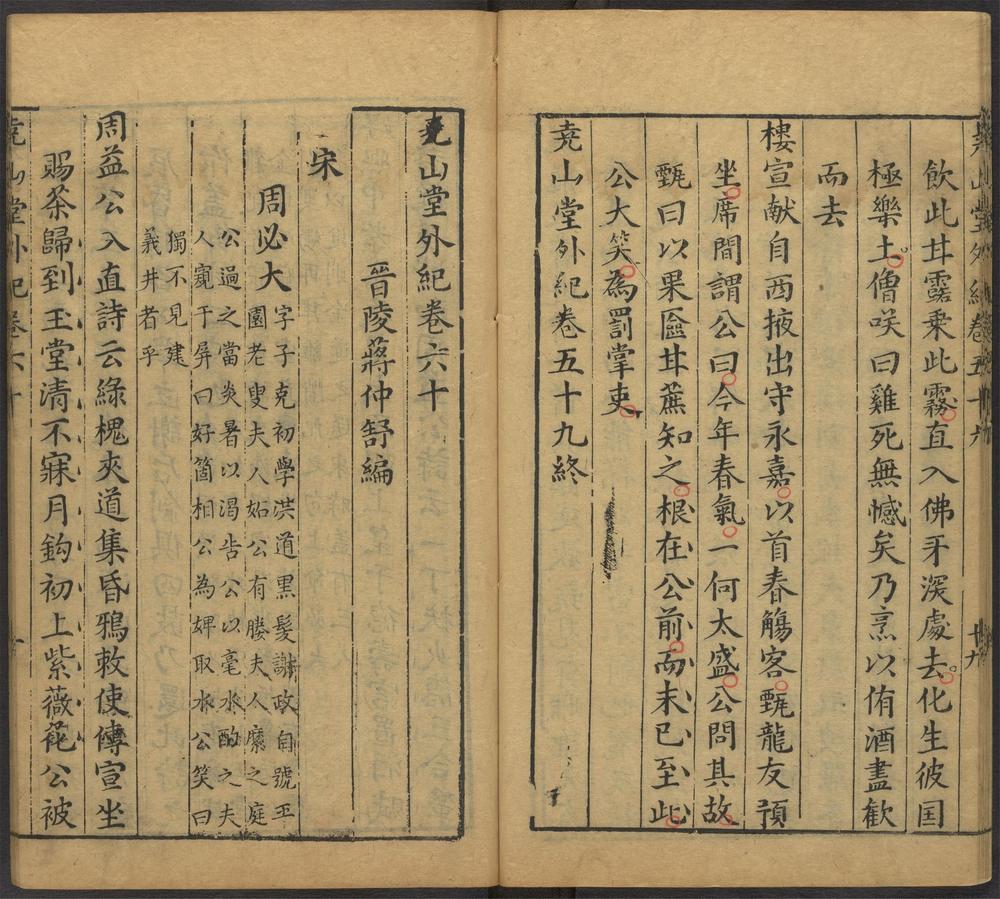 飲此甘露乗此霧直入佛牙深處去化生彼国
極樂土僧咲曰雞死無憾矣乃烹以侑酒盡歡
而去
樓宣献自西掖出守永嘉以首春觴客甄龍友預
坐席間謂公曰今年春氣一何太盛公問其故
甄曰以果匳甘蔗知之根在公前而末已至此
公大笑為罰掌吏
尭山堂外紀卷五十九終
尭山堂外紀卷六十
晉陵蔣仲舒編
宋
周必大
字子充初學洪道黒髪謝政自號平
園老叟夫人妬公有媵夫人縻之庭
公過之當炎暑以渴告公以毫水酌之夫
人窺于屏曰好箇相公為婢取水公笑曰
獨不見建
義井者乎
周益公入直詩云綠槐夾道集昏鴉敕使傳宣坐
賜茶歸到玉堂清不寐月鈎初上紫薇花公被